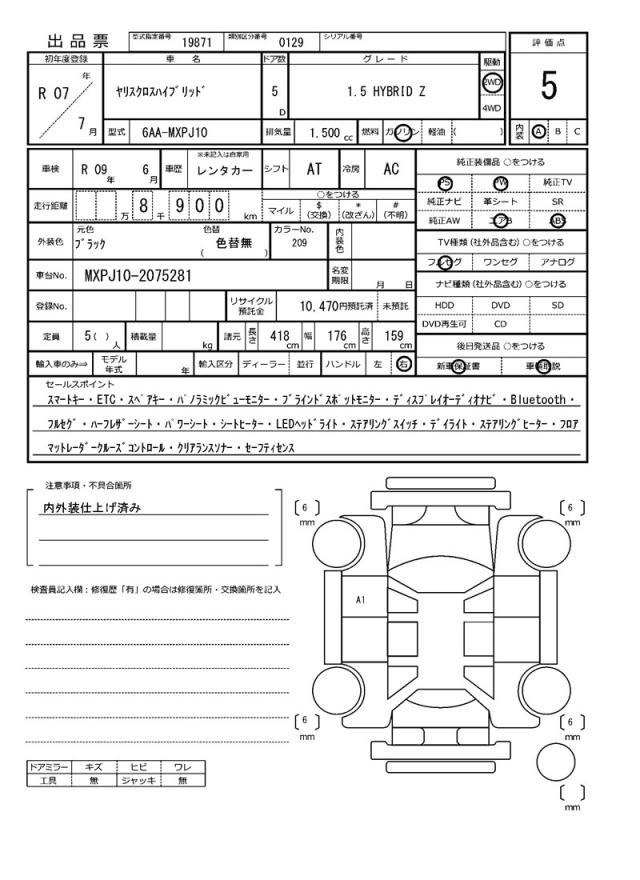 出品票
型式指定番号 19871 類別区分番号 0129 シリアル番号
初年度登録 車名 ドア数 グレード 駆動 評価点
R 07 年 7 月 ヤリスクロスハイブリッド 5 D 1.5 HYBRID Z 2WD 4WD 5
型式 6AA-MXPJ10 排気量 1.500 cc 燃料 ガソリン 軽油 ( ) 内装 A B C
車検 R 09 年 6 月 車歴 ※未記入は自家用 レンタカー シフト AT 冷房 AC
走行距離 万 8 千 9 0 0 km ○をつける マイル $ (交換) * (改ざん) # (不明)
外装色 元色 ブラック 色替 ( 色替無 ) カラーNo. 209 内装色
車台No. MXPJ10-2075281 名変期限 月 日
登録No. リサイクル預託金 10,470円預託済 未預託
定員 5( ) 人 積載量 kg 諸元 長さ 418 cm 幅 176 cm 高さ 159 cm
輸入車のみ⇒ モデル年式 年 輸入区分 ディーラー 並行 ハンドル 左 右
純正装備品 ○をつける
PS PW 純正TV
純正ナビ 革シート SR
純正AW エアB ABS
TV種類(社外品含む)○をつける
フルセグ ワンセグ アナログ
ナビ種類(社外品含む)○をつける
HDD DVD SD
DVD再生可 CD
後日発送品 ○をつける
新車保証書 車輌取説
セールスポイント
スマートキー・ETC・スペアキー・パノラミックビューモニター・ブラインドスポットモニター・ディスプレイオーディオナビ・Bluetooth・
フルセグ・ハーフレザーシート・パワーシート・シートヒーター・LEDヘッドライト・ステアリングスイッチ・デイライト・ステアリングヒーター・フロア
マットレーダークルーズコントロール・クリアランスソナー・セーフティセンス
注意事項・不具合箇所
内外装仕上げ済み
検査員記入欄:修復歴「有」の場合は修復箇所・交換箇所を記入
〔 6 〕 mm 〔 6 〕 mm
A1
〔 6 〕 mm 〔 6 〕 mm
〔 〕 mm
ドアミラー キズ ヒビ ワレ
工具 無 ジャッキ 無